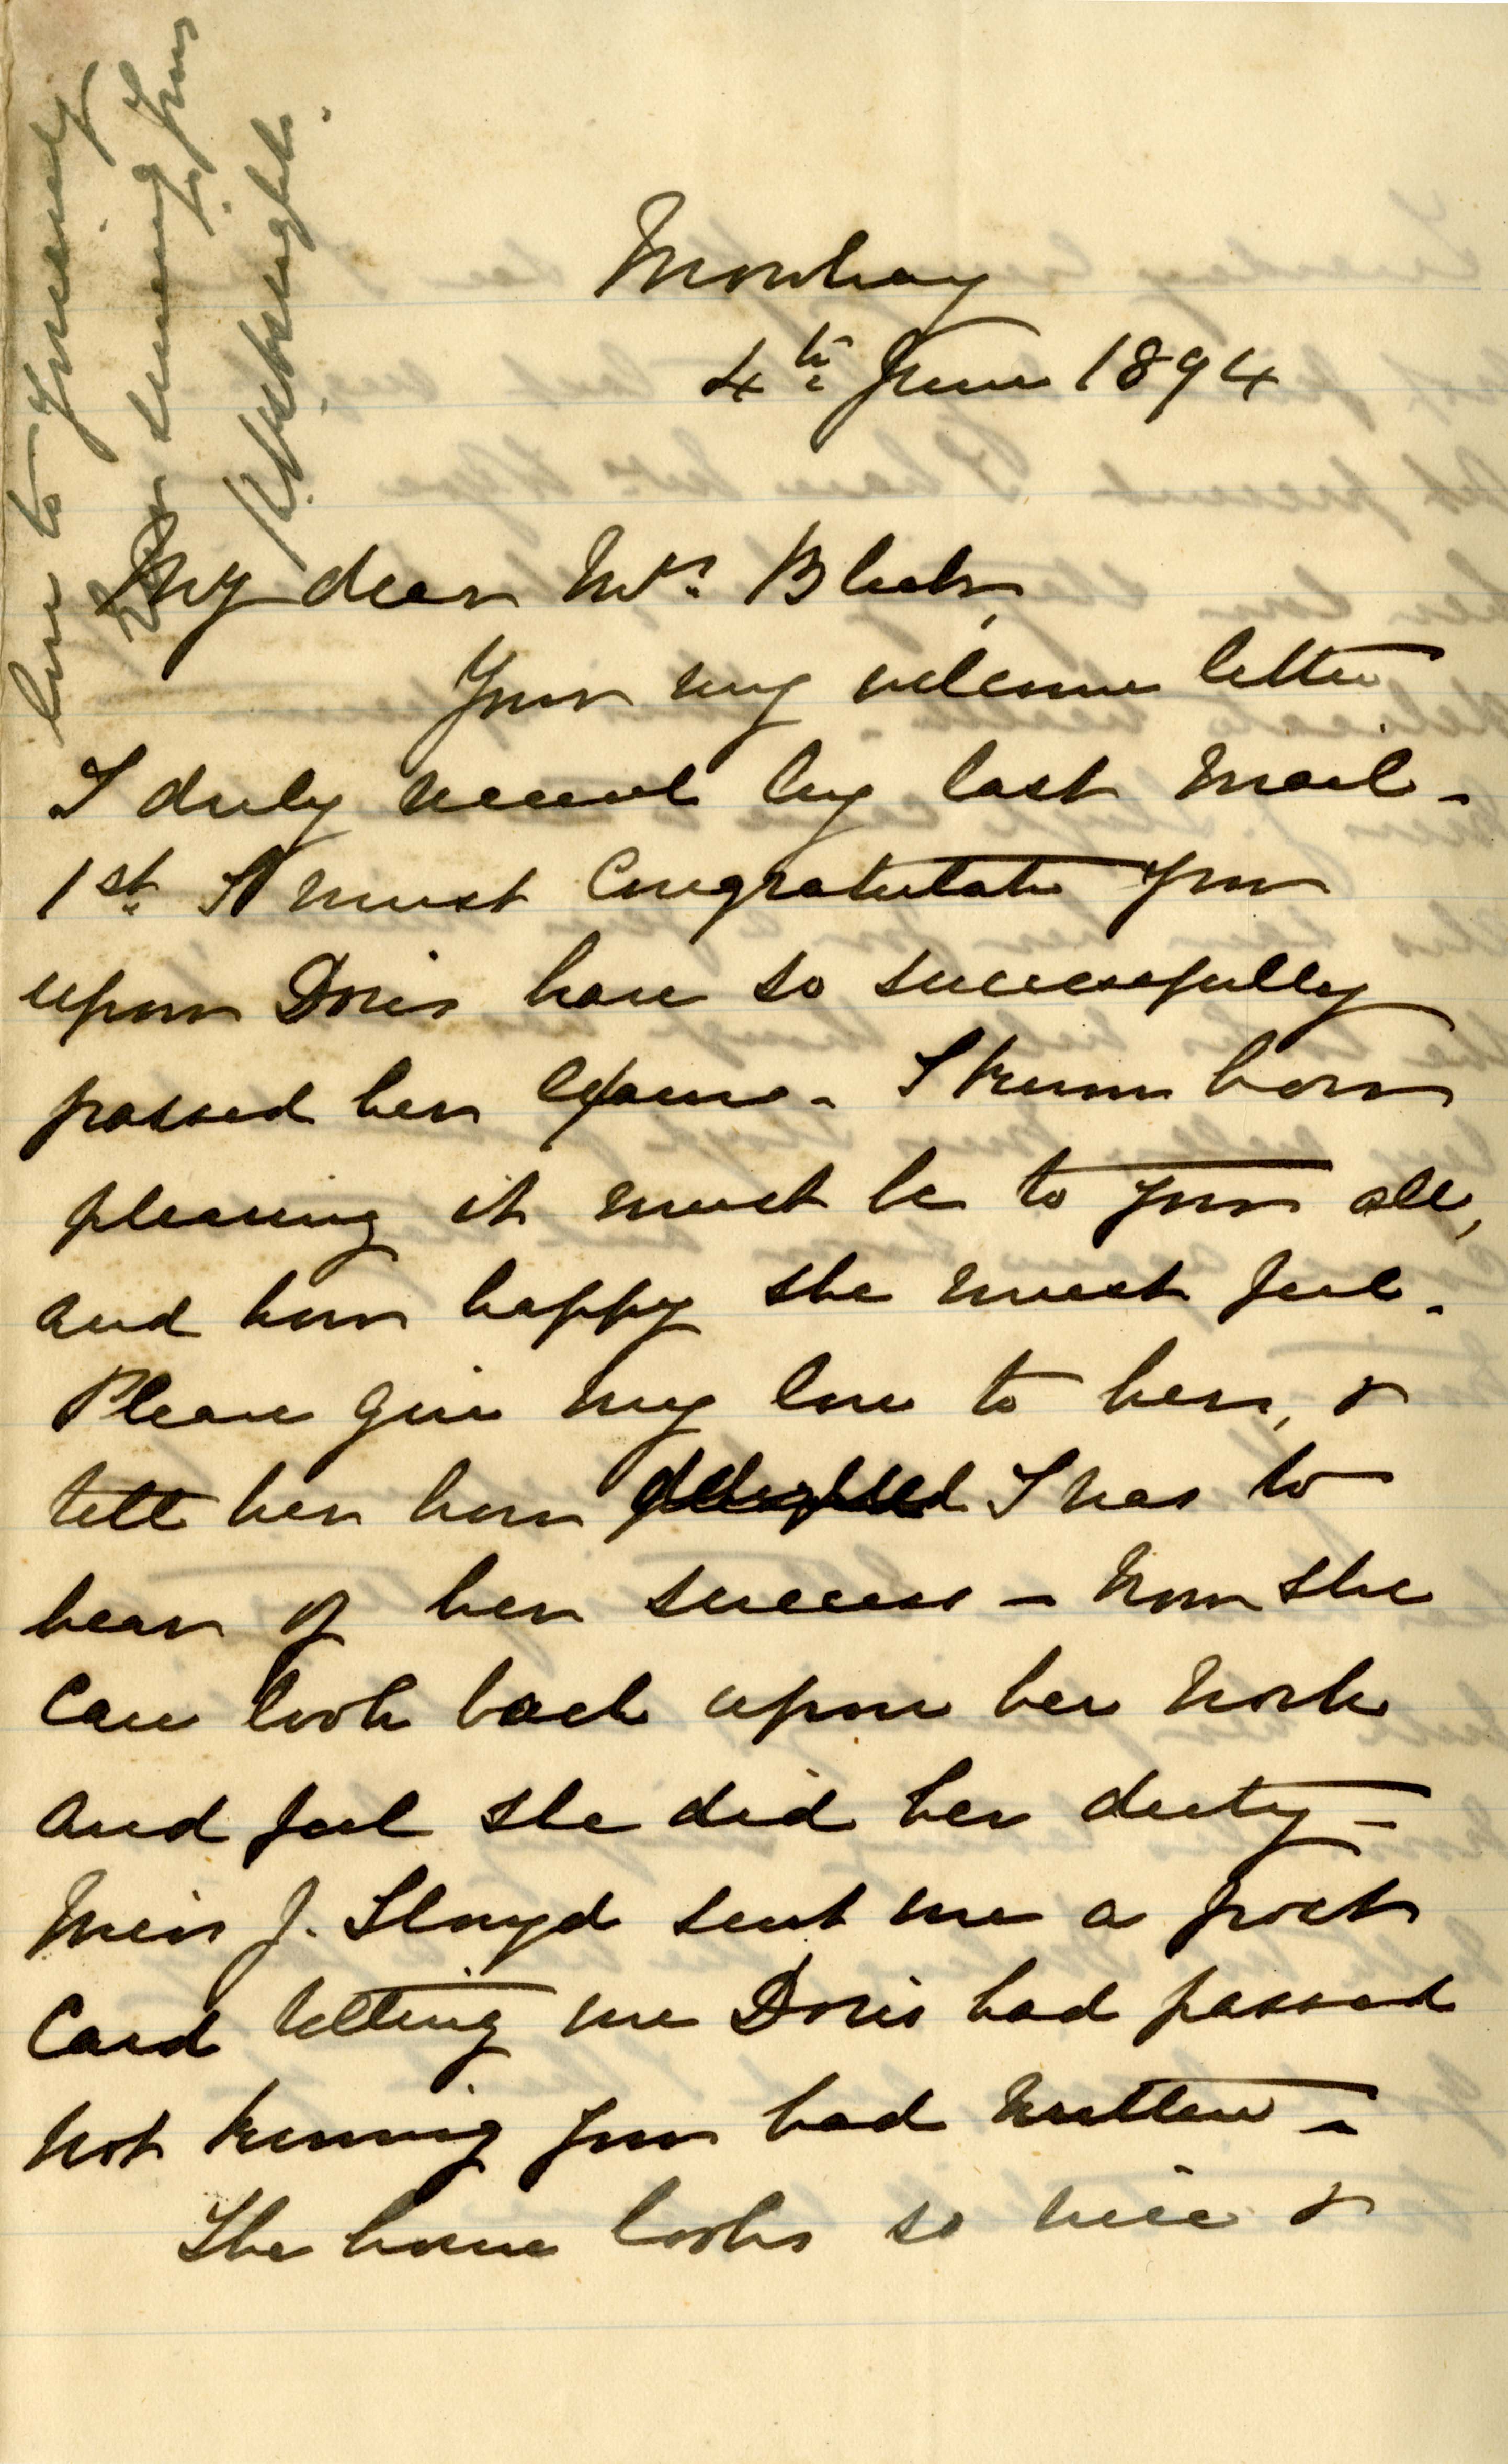 Mowbray
4th June 1894
My dear Mrs. Bleek,
Your very welcome letter
I duly received by last mail -
1st. I must Congratulate you
upon Doris have so successfully
passed her exams - I know how
pleasing it must be to you all,
and how happy she must feel.
Please give my love to her, &
tell her how delighted I was to
hear of her success - Now she
can look back upon her work
and feel she did her duty -
Miss J. Lloyd sent me a post
Card telling me Doris had passed
not knowing you had written -
The house looks so nice &
love to yourself
yours